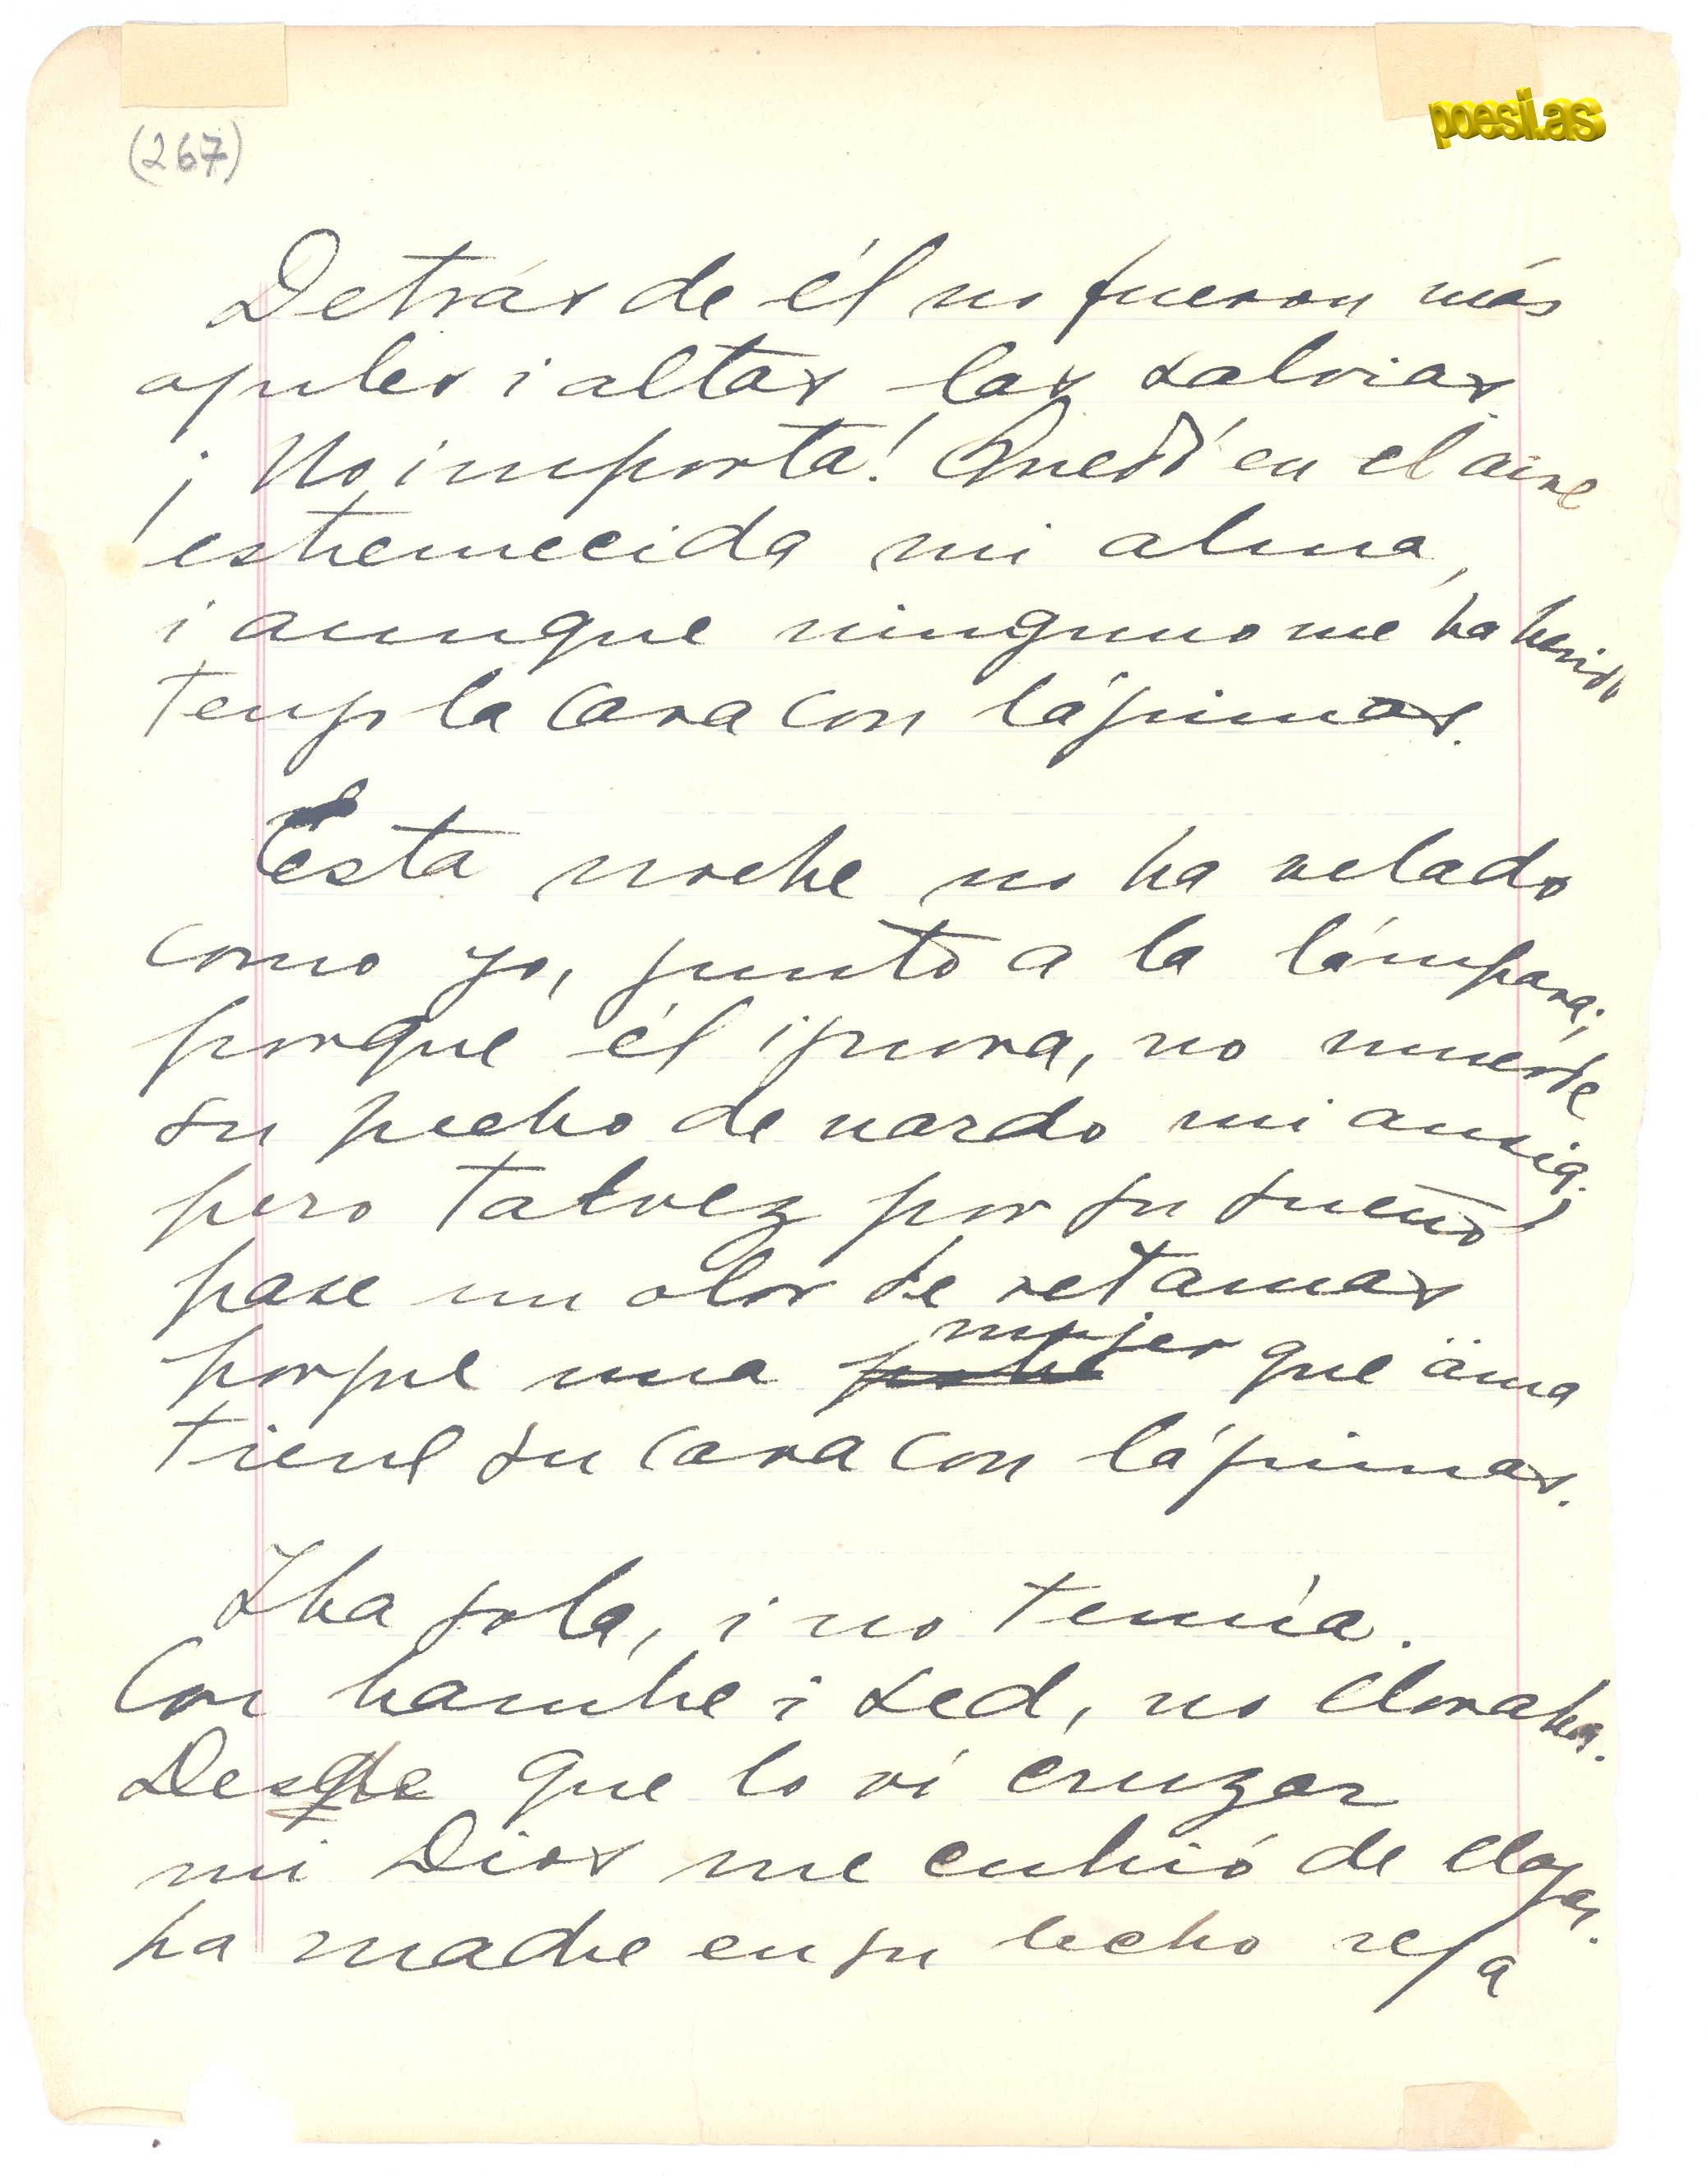 (267)
poesi.as
Detrás de él no fueron más
azules i altas las salvias.
¡No importa! Quedó en el aire
estremecida mi alma,
i aunque ninguno me ha herido
tengo la cara con lágrimas.
Esta noche no ha velado
como yo, junto a la lámpara;
porque él ignora, no muerde
su pecho de nardo mi ansia;
pero talvez por su sueño
pase un olor de retamas
mujer
porque una pobre que ama
tiene su cara con lágrimas.
Iba sola, i no temía.
Con hambre i sed, no lloraba.
Desde que lo vi cruzar
mi Dios me cubrió de llagas.
La madre en su lecho reza